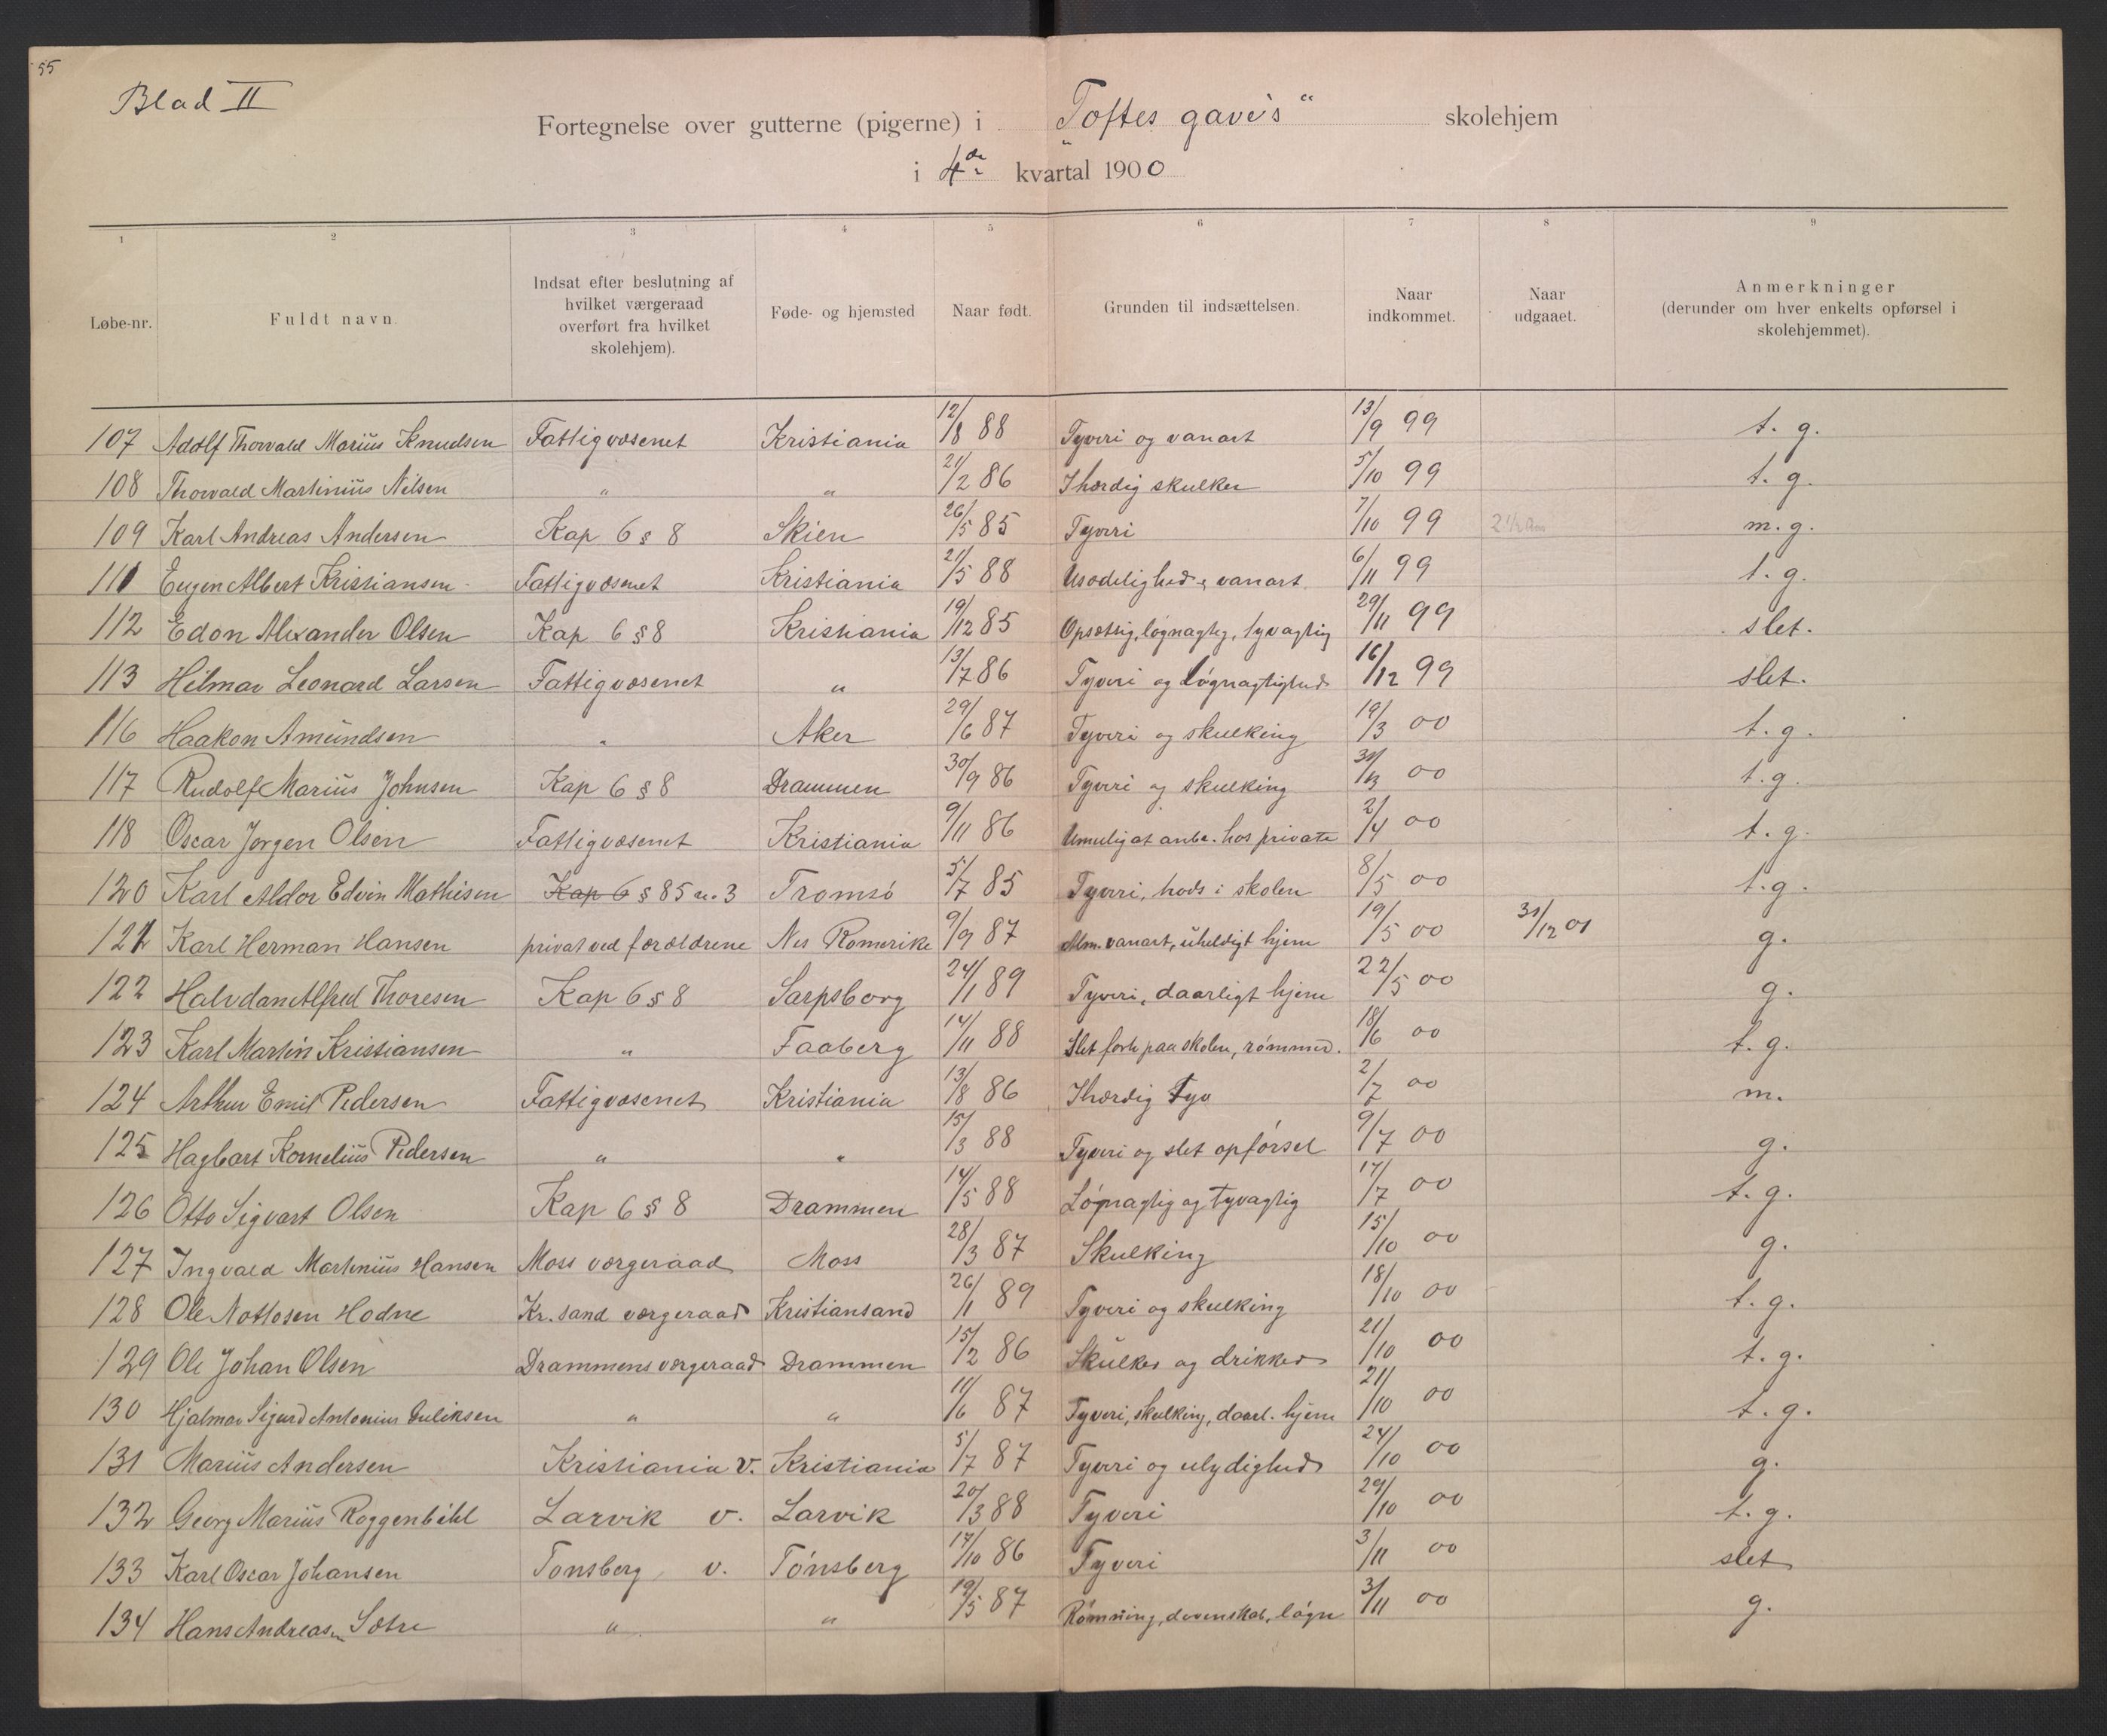 55
Blad II
Fortegnelse over gutterne (pigerne) i „Toftes gave's“ skolehjem
i 4de kvartal 1900
1 2 3 4 5 6 7 8 9
Løbe-nr. Fuldt navn. Indsat efter beslutning af hvilket værgeraad overført fra hvilket skolehjem). Føde- og hjemsted Naar født. Grunden til indsættelsen. Naar indkommet. Naar udgaaet. Anmerkninger (derunder om hver enkelts opførsel i skolehjemmet).
107 Adolf Thorvald Marius Knudsen Fattigvæsenet Kristiania 12/8 88 Tyveri og vanart 13/9 99 t. g.
108 Thorvald Martinius Nilsen " " 21/2 86 Ihærdig skulker 5/10 99 t. g.
109 Karl Andreas Andersen Kap 6 § 8 Skien 26/5 85 Tyveri 7/10 99 m. g.
111 Eugen Albert Kristiansen Fattigvæsenet Kristiania 21/5 88 Usædelighed & vanart. 6/11 99 t. g.
112 Edon Alexander Olsen Kap 6 § 8 Kristiania 19/12 85 Opsætsig, løgnagtig, tyvagtig 29/11 99 slet.
113 Hilmar Leonard Larsen Fattigvæsenet " 13/7 86 Tyveri og løgnagtighed 16/12 99 slet.
116 Haakon Amundsen " Aker 29/6 87 Tyveri og skulking 19/3 00 t. g.
117 Rudolf Marius Johnsen Kap 6 § 8 Drammen 30/9 86 Tyveri og skulking 31/3 00 t. g.
118 Oscar Jørgen Olsen Fattigvæsenet Kristiania 9/11 86 Umulig at anbr. hos private 2/4 00 t. g.
120 Karl Aldor Edvin Mathisen Kap 6 § 85 n. 3 Tromsø 5/7 85 Tyveri, trods i skolen 8/5 00 t. g.
121 Karl Herman Hansen privat ved forældrene Nes Romerike 9/9 87 Alm. vanart, uheldigt hjem 19/5 00 31/12 01 g.
122 Halvdan Alfred Thoresen Kap 6 § 8 Sarpsborg 24/1 89 Tyveri, daarligt hjem 22/5 00 g.
123 Karl Martin Kristiansen " Faaberg 14/11 88 Slet forh paa skolen, rømmed. 18/6 00 t. g.
124 Arthur Emil Pedersen Fattigvæsenet Kristiania 13/8 86 Ihærdig tyv 2/7 00 m.
125 Hagbart Kornelius Pedersen " " 15/3 88 Tyveri og slet opførsel 9/7 00 g.
126 Otto Sigvart Olsen Kap 6 § 8 Drammen 14/5 88 Løgnagtig og tyvagtig 17/7 00 t. g.
127 Ingvald Martinius Hansen Moss værgeraad Moss 28/3 87 Skulking 15/10 00 g.
128 Ole Nottosen Hodne Kr. sand værgeraad Kristiansand 26/1 89 Tyveri og skulking 18/10 00 t. g.
129 Ole Johan Olsen Drammens værgeraad Drammen 15/2 86 Skulker og drikker 21/10 00 t. g.
130 Hjalmar Sigurd Antonius Guliksen " " 11/6 87 Tyveri, skulking, daarl. hjem 21/10 00 t. g.
131 Marius Andersen Kristiania v. Kristiania 5/7 87 Tyveri og ulydighed 24/10 00 g.
132 Georg Marius Roggenbihl Larvik v. Larvik 20/3 88 Tyveri 29/10 00 t. g.
133 Karl Oscar Johansen Tønsberg v. Tønsberg 17/10 86 Tyveri 3/11 00 slet
134 Hans Andreas Sætre " " 19/5 87 Rømning, dovenskab, løgn 3/11 00 g.